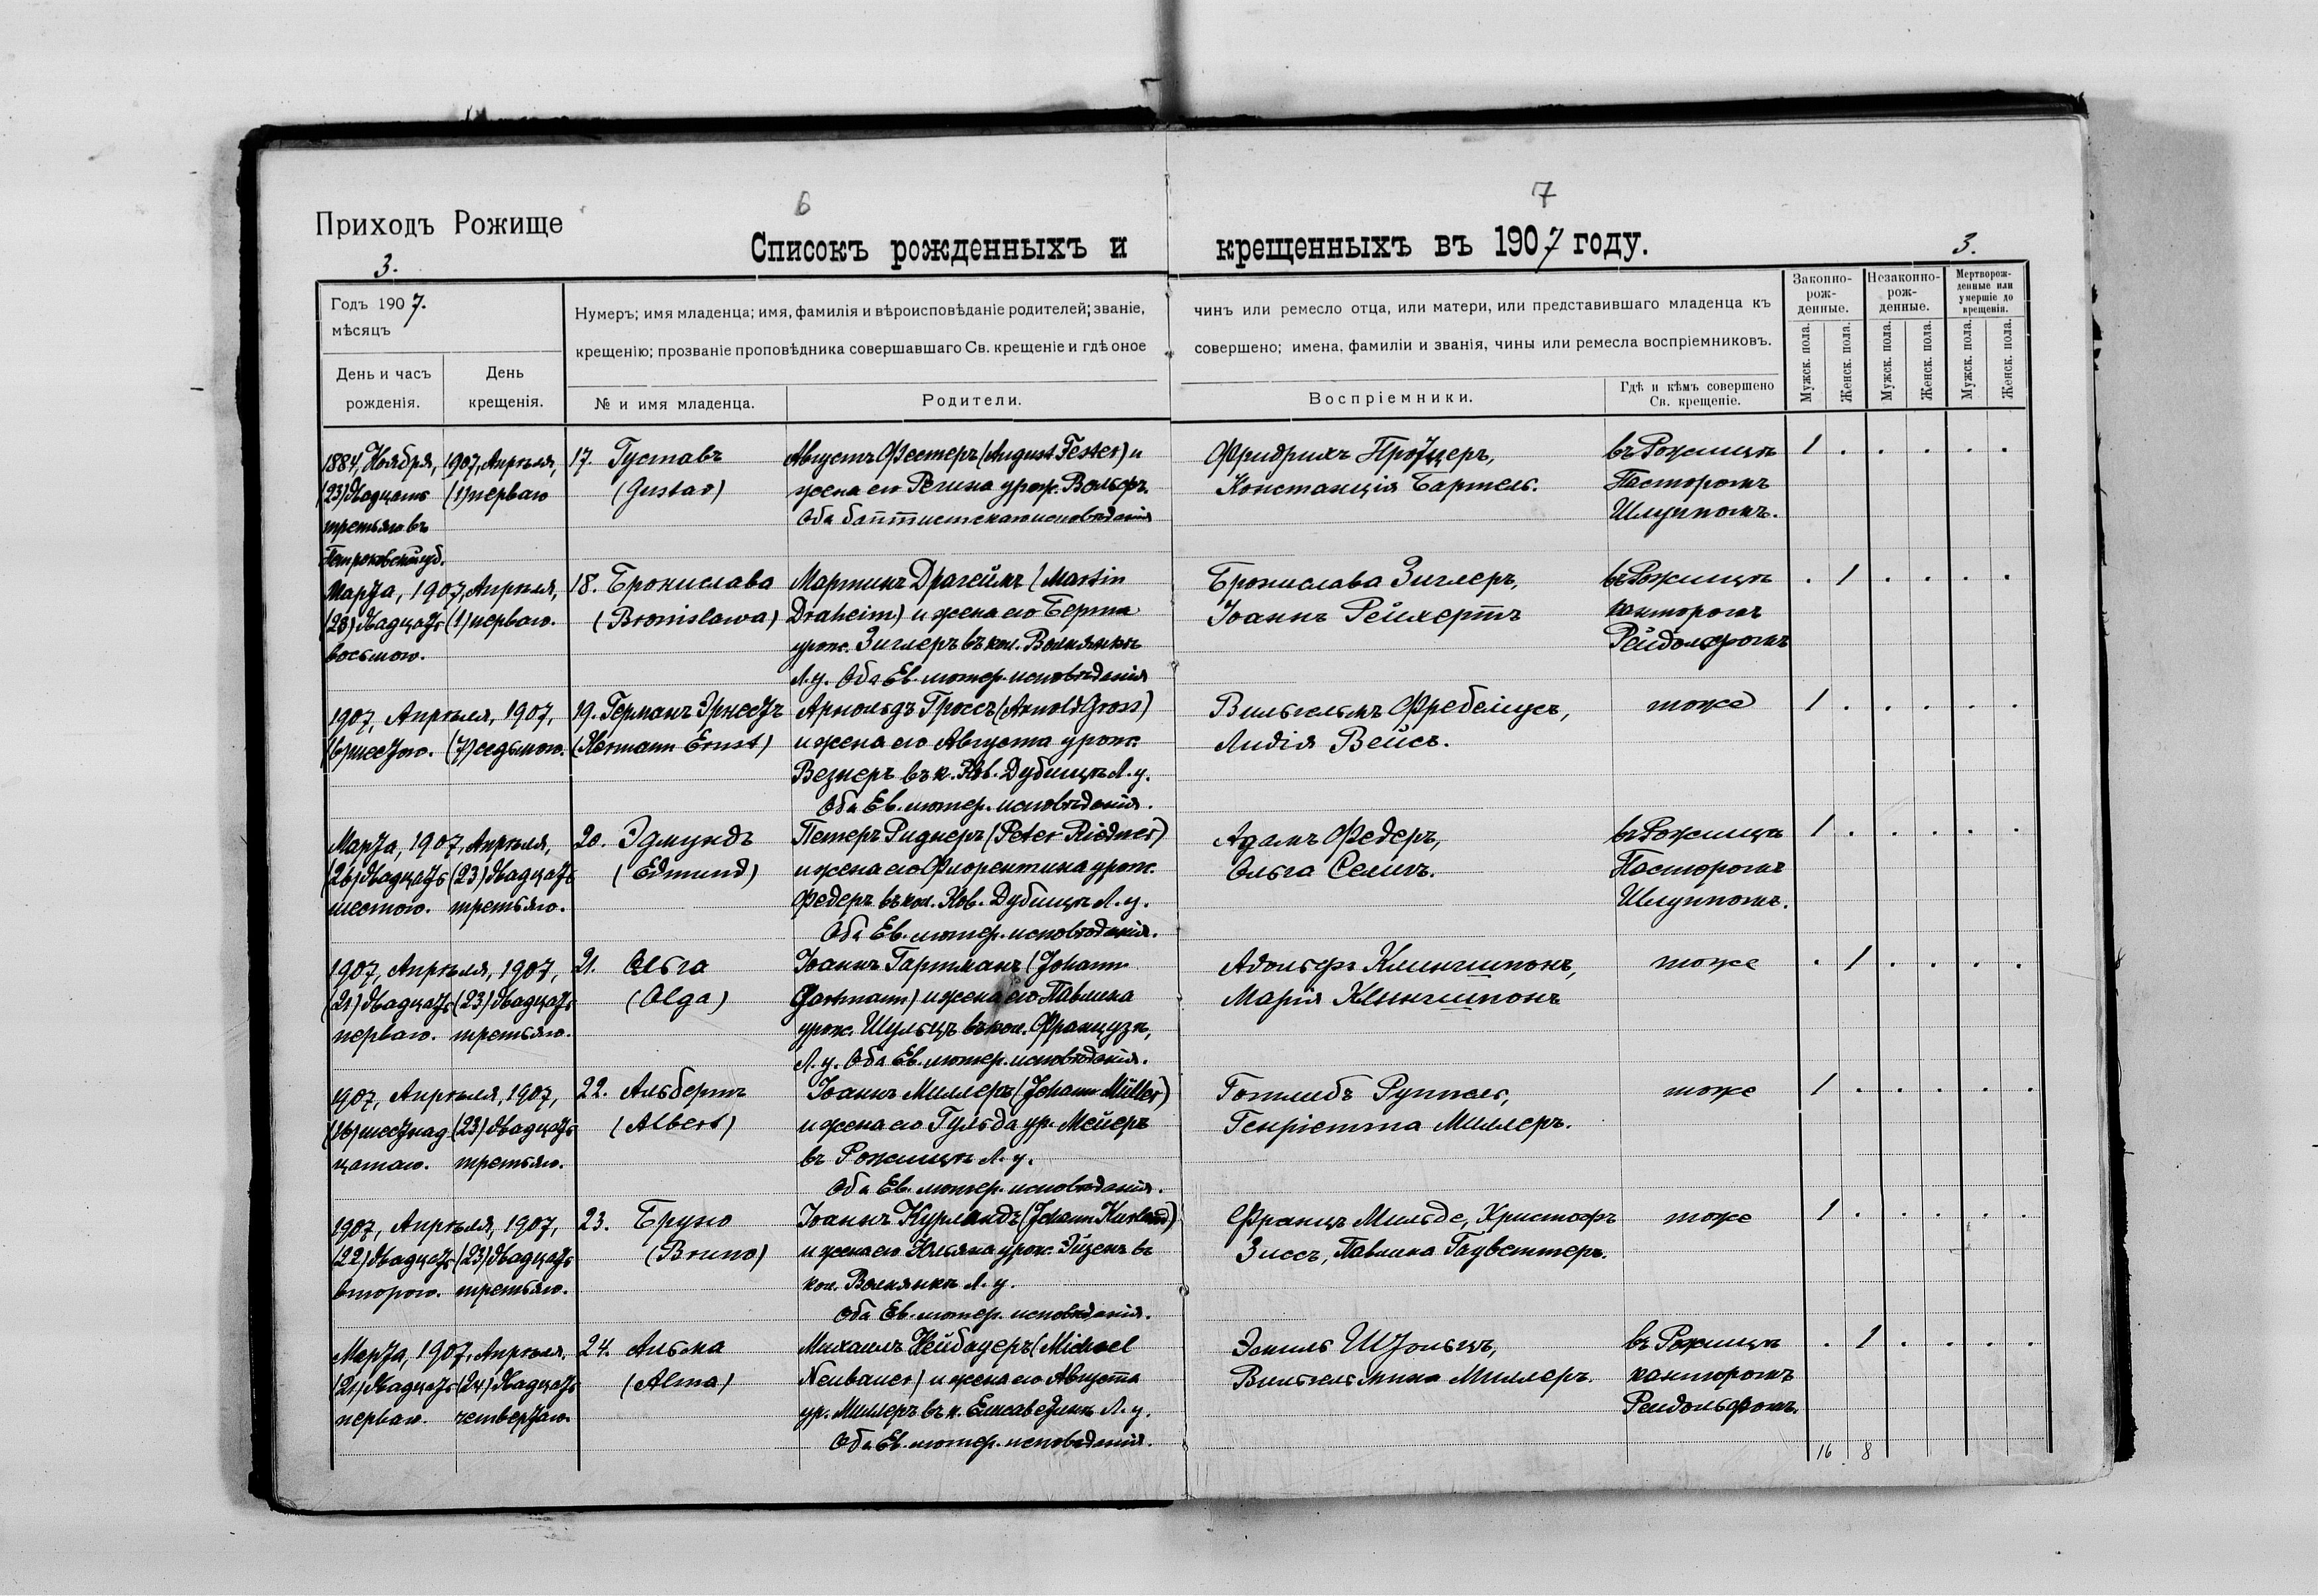 6
7
Приходъ Рожище
Списокъ рожденныхъ и крещенныхъ въ 1907 году.
3.
3.
Годъ 1907.
мѣсяцъ
День и часъ рожденія.
День крещенія.
Нумеръ; имя младенца; имя, фамилія и вѣроисповѣданіе родителей; званіе, чинъ или ремесло отца, или матери, или представившаго младенца къ
крещенію; прозваніе проповѣдника совершавшаго Св. крещеніе и гдѣ оное совершено; имена, фамиліи и званія, чины или ремесла воспріемниковъ.
№ и имя младенца.
Родители.
Воспріемники.
Гдѣ и кѣмъ совершено Св. крещеніе.
Законно-рож-денные.
Незаконно-рож-денные.
Мертворож-денные или умершіе до крещенія.
Мужск. пола.
Женск. пола.
Мужск. пола.
Женск. пола.
Мужск. пола.
Женск. пола.
1884, Ноября, 1907, Апрѣля, 17. Густавъ Августъ Фестеръ (August Fester) и Фридрихъ Протцеръ, въ Рожищѣ 1 . . . . .
(23) двадцать (1) перваго (Gustav) жена его Регина урож. Вольфъ. Констанція Бартель. Пасторомъ
третьяго въ Оба баптистскаго исповѣданія Шлуппомъ.
Петроковской губ.
Марта, 1907, Апрѣля, 18. Брониславa Мартинъ Драгеймъ (Martin Бронислава Зиглеръ, въ Рожищѣ . 1 . . . .
(28) двадцать (1) перваго. (Bronislawa) Draheim) и жена его Берта Іоаннъ Рейхертъ канторомъ
восьмого. урож. Зиглеръ въ кол. Волнянкѣ Рейдольфомъ
Л. у. Оба Ев. лютер. исповѣданія
1907, Апрѣля, 1907, 19. Германъ Эрнестъ Арнольдъ Гроссъ (Arnold Gross) Вильгельмъ Фребеліусъ, тоже 1 . . . . .
(6) шестого. (7) седьмого. (Hermann Ernst) и жена его Августа урож. Лидія Вейсъ.
Везнеръ въ к. Нов. Дубищѣ Л. у.
Оба Ев. лютер. исповѣданія.
Марта, 1907, Апрѣля, 20. Эдмундъ Петеръ Риднеръ (Peter Riedner) Адамъ Федеръ, въ Рожищѣ 1 . . . . .
(26) двадцать (23) двадцать (Edmund) и жена его Флорентина урож. Ольга Селигъ. Пасторомъ
шестого. третьяго. Федеръ въ кол. Нов. Дубищѣ Л. у. Шлуппомъ.
Оба Ев. лютер. исповѣданія.
1907, Апрѣля, 1907, 21. Ольга Іоаннъ Гартманъ (Johann Адольфъ Клингшпонъ, тоже . 1 . . . .
(21) двадцать (23) двадцать (Olga) Gartmann) и жена его Павлина Марія Клингшпонъ
перваго. третьяго. урож. Шульцъ въ кол. Французк,
Л. у. Оба Ев. лютер. исповѣданія.
1907, Апрѣля, 1907, 22. Альбертъ Іоаннъ Миллеръ (Johann Müller) Готлибъ Руппель, тоже 1 . . . . .
(16) шестнад (23) двадцать (Albert) и жена его Гульда ур. Мейеръ Генріетта Миллеръ.
цатаго. третьяго. въ Рожищѣ Л. у.
Оба Ев. лютер. исповѣданія.
1907, Апрѣля, 1907, 23. Бруно Іоаннъ Курландъ (Johann Kurland) Францъ Мильде, Христофъ тоже 1 . . . . .
(22) двадцать (23) двадцать (Bruno) и жена его Юльяна урож. Эйзенъ въ Зиссъ, Павлина Гауветтеръ.
второго. третьяго. кол. Волнянкѣ Л. у.
Оба Ев. лютер. исповѣданія.
Марта, 1907, Апрѣля. 24. Альма Михаилъ Нейбауеръ (Michael Эмиль Штольцъ, въ Рожищѣ . 1 . . . .
(21) двадцать (24) двадцать (Alma) Neubauer) и жена его Августа Вильгельмина Миллеръ. канторомъ
перваго. четвертаго. ур. Миллеръ въ к. Елисаветинѣ Л. у. Рейдольфомъ.
Оба Ев. лютер. исповѣданія.
16 8